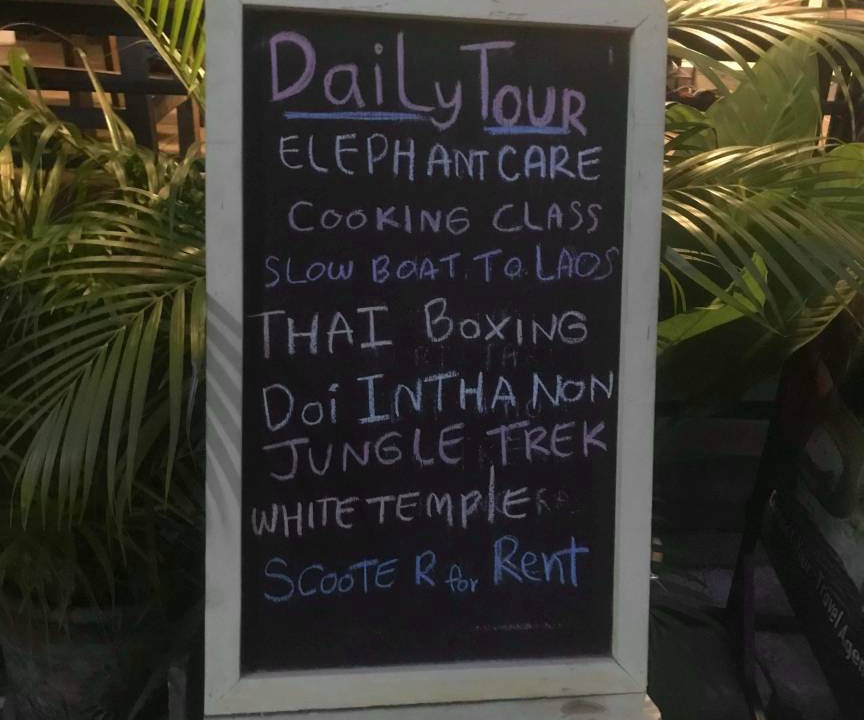 DaiLy TOUR
ELEPHANT CARE
COOKING CLASS
SLOW BOAT TO LAOS
THAI BOXING
Doi INTHANON
JUNGLE TREK
WHITE TEMPlE
SCOOTER for Rent
Travel